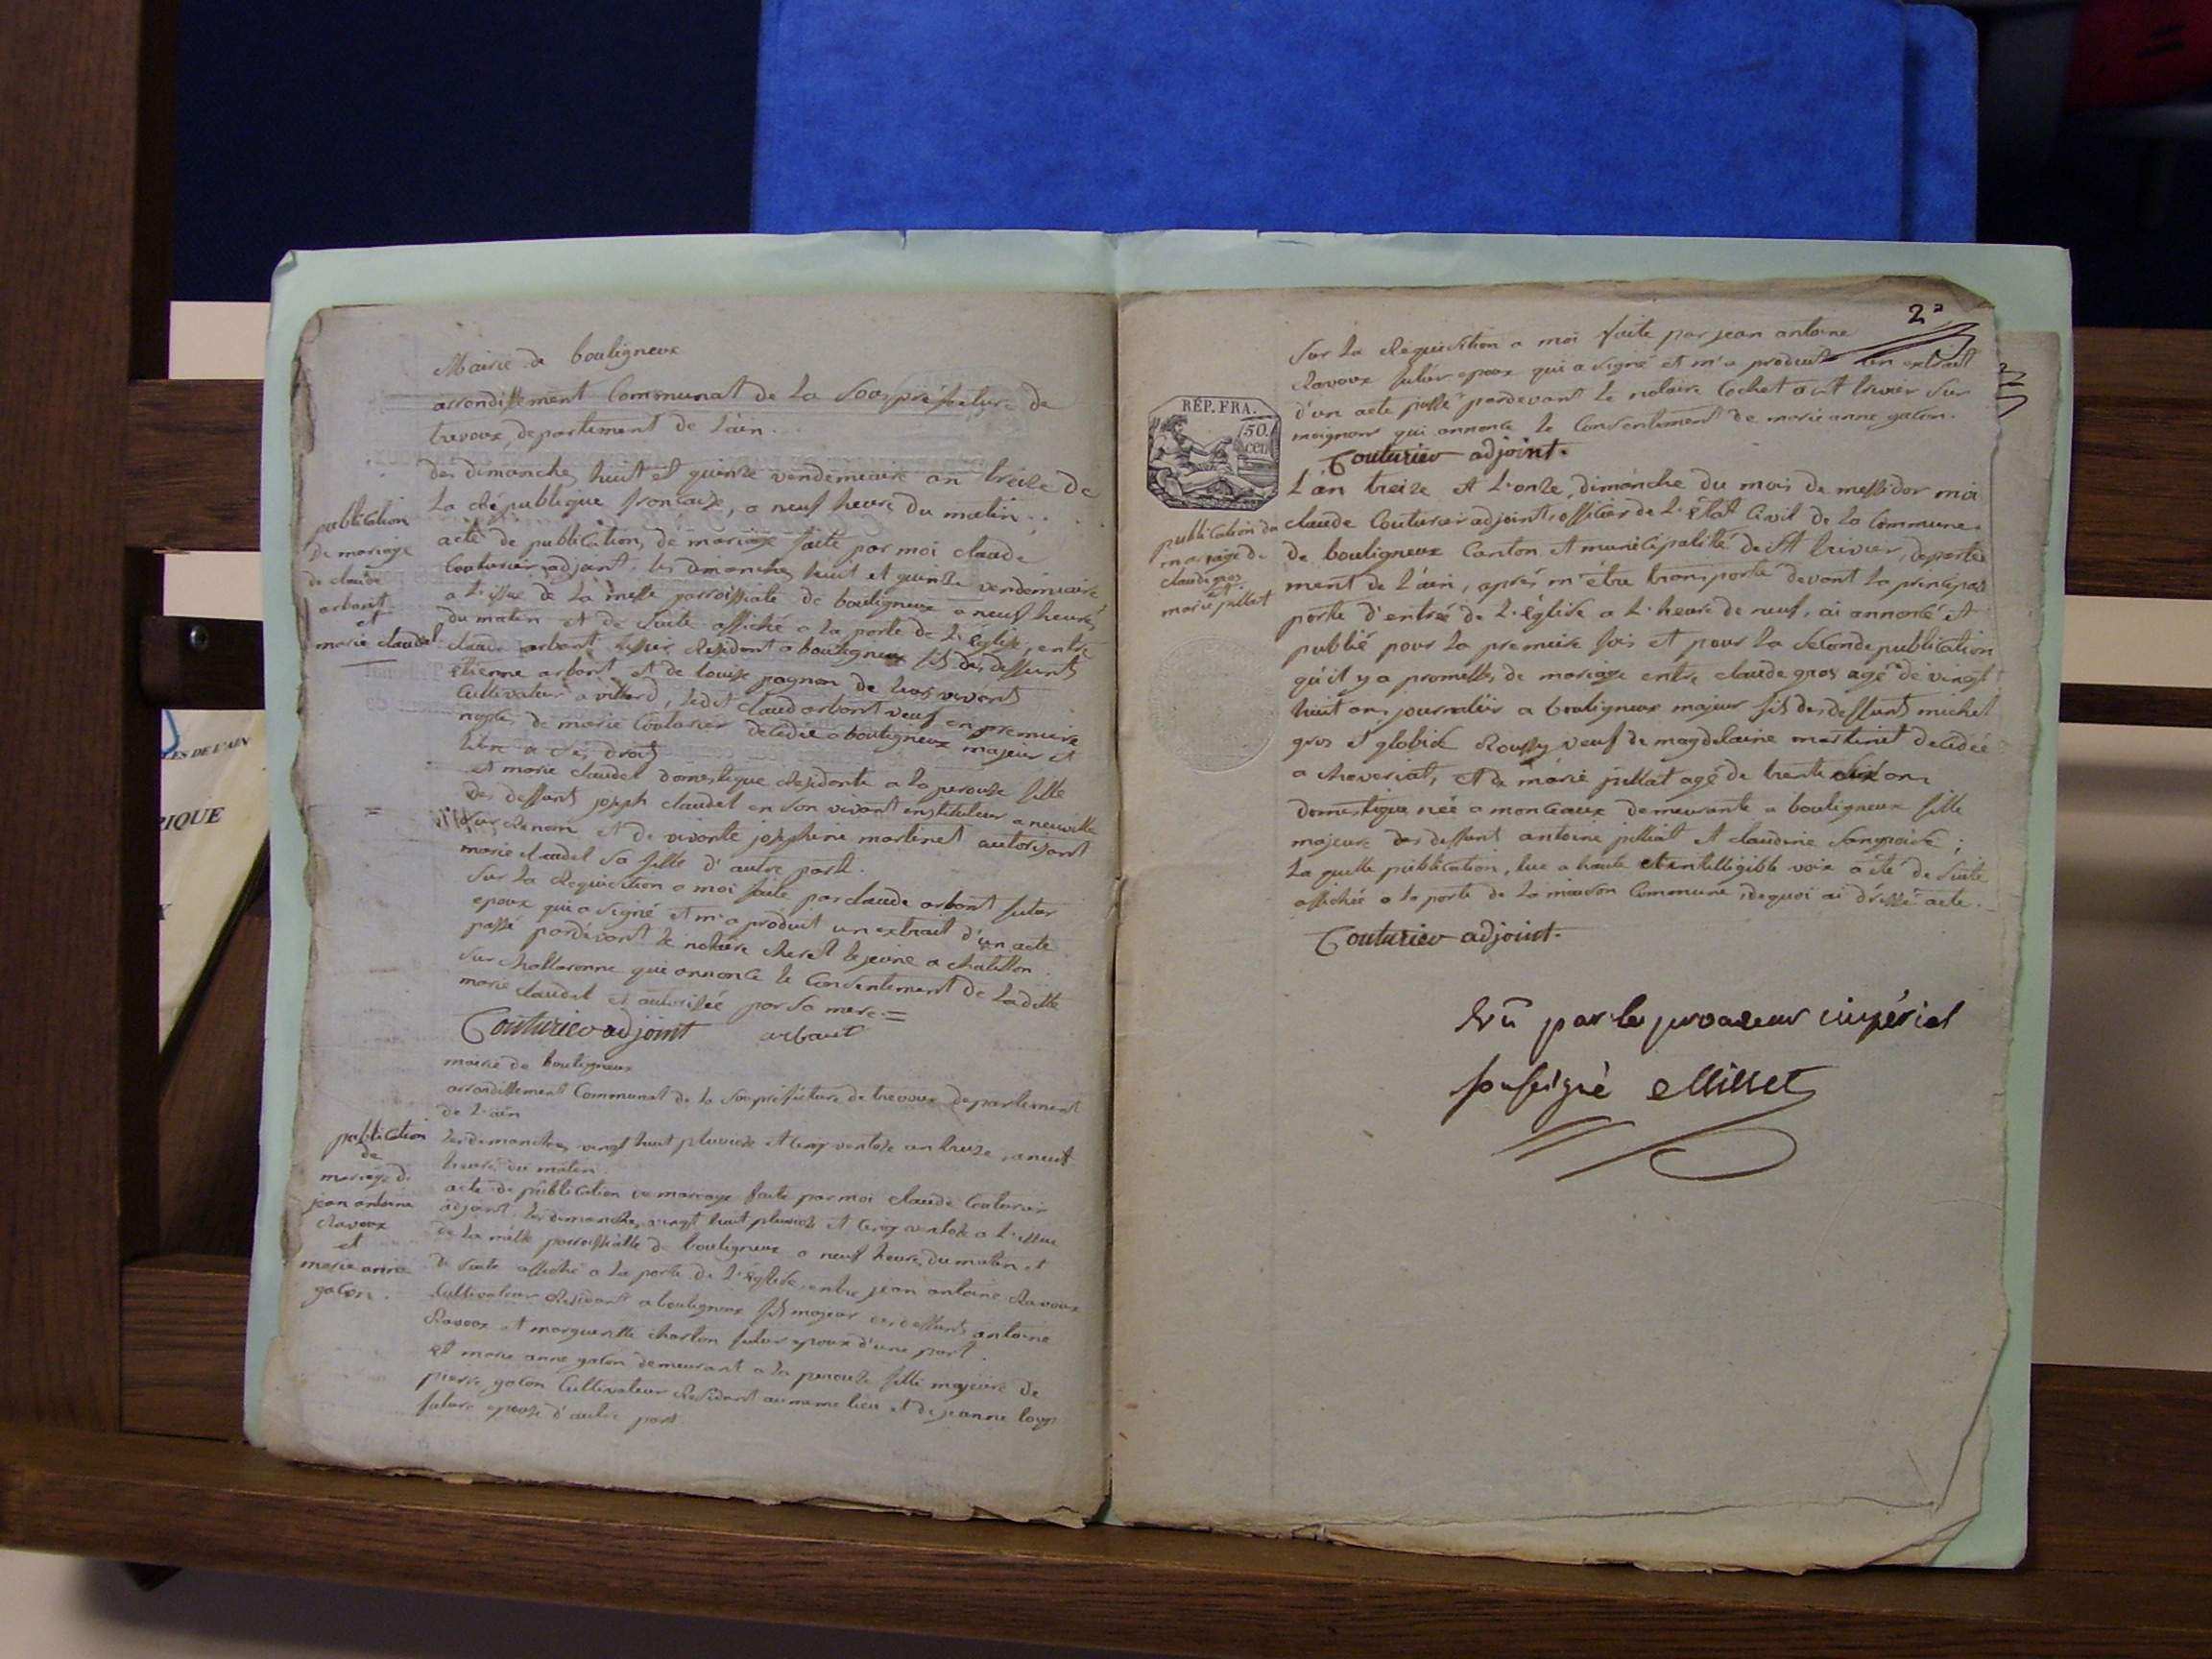 Mairie de bouligneux
arrondissement Communal de La Sous préfecture de
trevoux, departement de L'ain..
des dimanches huit et quinze vendemiaire an treize de
La République francaise, a neuf heure du matin..
publication
de mariage
de claude
arbant
et
marie claudel
acte de publication, de mariage faite par moi claude
Couturier adjoint. les dimanches huit et quinze vendemiaire
a L'issue de La messe parroissiale de bouligneux a neuf heures
du matin et de suite affiché a la porte de L'église, entre
claude arbant tissier Résident a bouligneux fils des deffunts
étienne arbant et de louise pagnon de leurs vivants
Cultivateur a villard, ledit claud arbant veuf en premiere
noces de marie Couturier décédée a bouligneux majeur et
libre a ses droits
et marie claudel domestique Residante a la perouze fille
des deffunt joseph claudel en son vivant instituteur a neuville
sur Renom et de vivante josephine martinet autorisant
marie claudel sa fille d'autre part.
Sur La Requisition a moi faite par claude arbant futur
epoux qui a signé et m'a produit un extrait d'un acte
passé pardevant le notaire cheret le jeune a chatillon
sur challaronne qui annonce le Consentement de Laditte
marie claudel et autorisée par sa mere =
Couturier adjoint arbant
mairie de bouligneux
arrondissement Communal de la Souspréfecture de trevoux departement
de L'ain
publication
de
mariage de
jean antoine
Ravoux
et
marie anne
gacon.
les dimanches vingt huit pluviose et cinq ventose an treize, a neuf
heures du matin.
acte de publication de mariage faite par moi claude Couturier
adjoint les dimanches vingt huit pluviose et cinq ventose a L'issue
de La messe parroissialle de bouligneux a neuf heure du matin et
de suite affiché a la porte de L'église entre jean antoine Ravoux
Cultivateur Résidant a bouligneux fils majeur des deffunts antoine
Ravoux et marguerite charton futur epoux d'une part.
et marie anne gacon demeurant a la perouze fille majeure de
pierre gacon Cultivateur Résidant au meme lieu et de jeanne loup
future epouse d'autre part.
2e
Sur La Requisition a moi faite par jean antoine
Ravoux futur epoux qui a signé et m'a produit un extrait
d'un acte passé pardevant le notaire Cochet a st trivier sur
moignans qui annonce le Consentement de marie anne gacon.
Couturier adjoint.
RÉP. FRA.
50.
cen
publication de
mariage de
claude gros
et
marie jullat
L'an treize et L'onze, dimanche du mois de messidor moi
claude Couturier adjoint, officier de L'état Civil de la Commune
de bouligneux Canton et municipalité de St trivier, departe
ment de L'ain, après m'être transporté devant la principale
porte d'entrée de L'église a L'heure de neuf, ai annoncé et
publié pour la premiere fois et pour la seconde publication
qu'il y a promesses de mariage entre claude gros agé de vingt
huit ans journalier a bouligneux majeur fils des deffunts michel
gros et Roussy veuf de magdelaine martinet décédée
a chaveriat, et de marie jullat agé de trente ans
domestique née a monceaux demeurante a bouligneux fille
majeure des deffunt antoine julliat et claudine ;
La quelle publication, lue a haute et intelligible voix a été de suite
affichée a la porte de La maison Commune, dequoi ai dréssé acte.
Couturier adjoint.
Vû par le procureur impérial
soussigné Millet
ES DE L'AIN
RIQUE